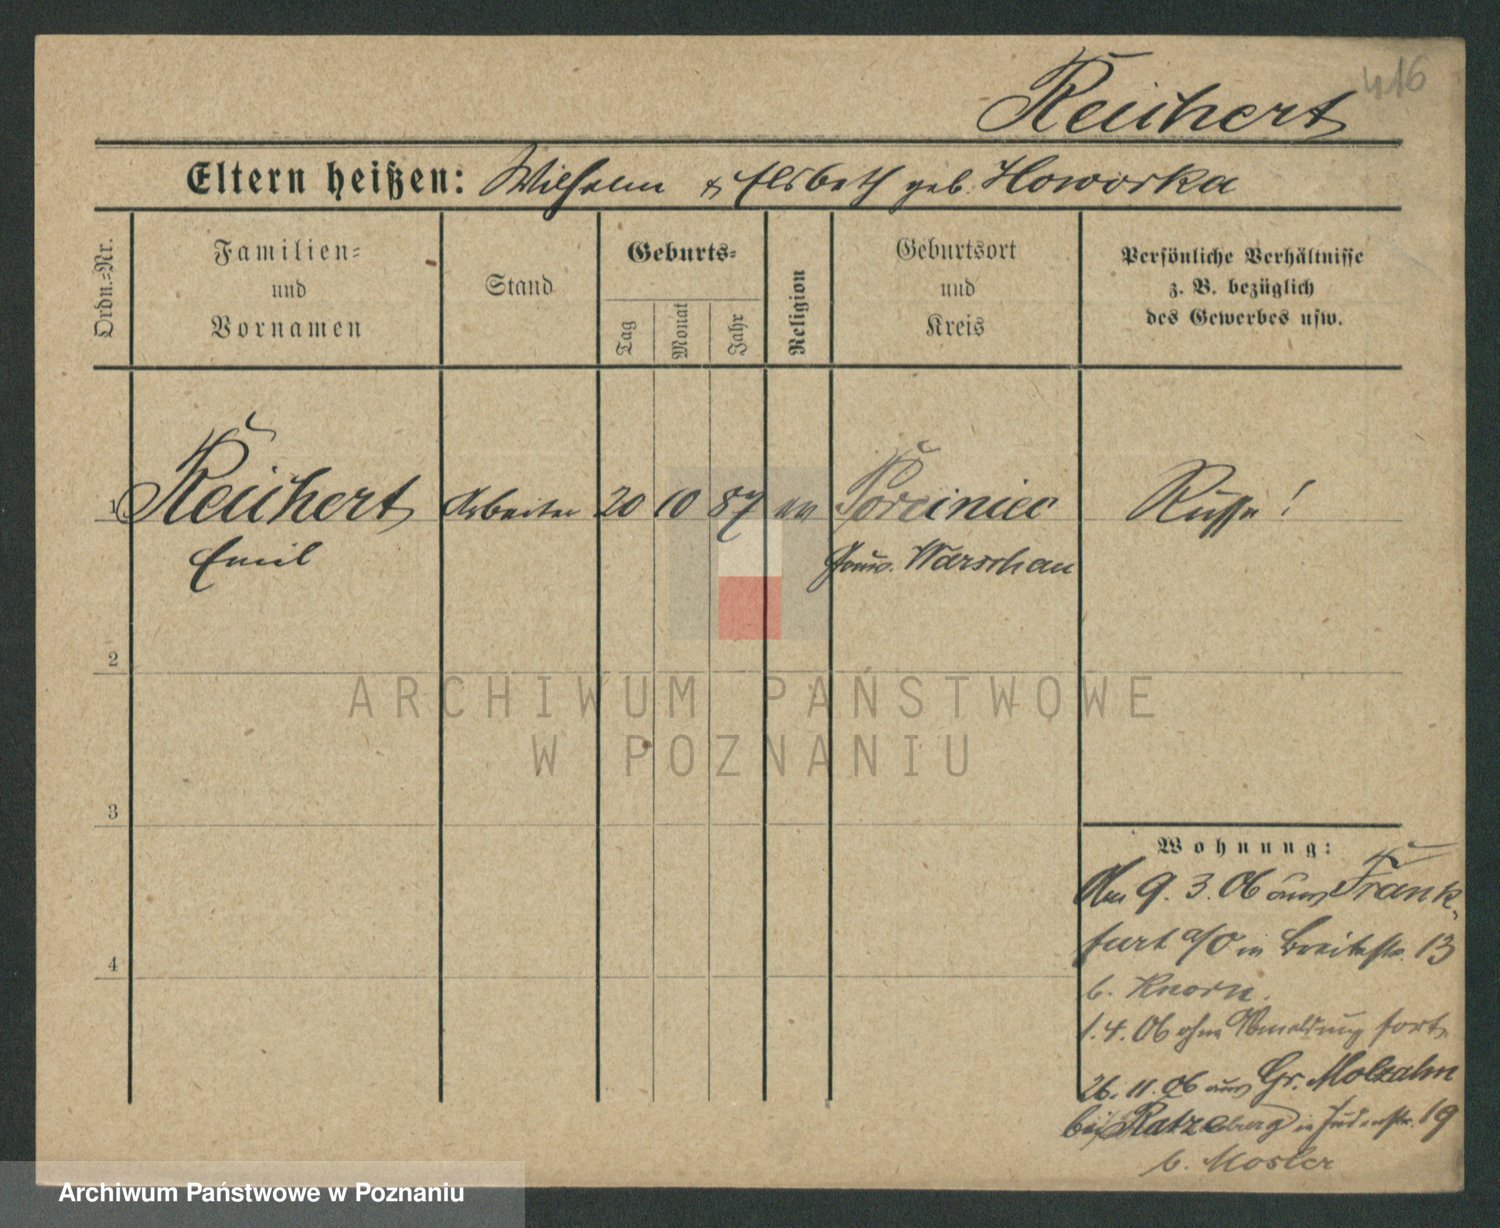 416
Reichert
Eltern heißen: Wilhelm & Elsbeth geb. Howorka
Ordn.=Nr.
Familien=
und
Vornamen
Stand
Geburts=
Tag
Monat
Jahr
Religion
Geburtsort
und
Kreis
Persönliche Verhältnisse
z. B. bezüglich
des Gewerbes usw.
1 Reichert Arbeiter 20 10 87 ev Porciniec Russe!
Emil Gouv. Warschau
2
3
4
Wohnung:
Am 9.3.06 aus Frank-
furt a/O in Breitestr. 13
b. Knorn.
1.4.06 ohne Abmeldung fort.
26.11.06 aus Gr. Molzahn
bei Ratzeburg in Judenstr. 19
b. Mosler
ARCHIWUM PAŃSTWOWE
W POZNANIU
Archiwum Państwowe w Poznaniu